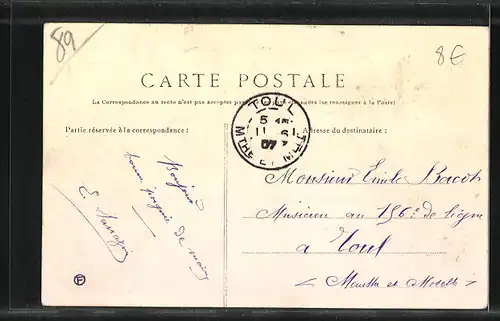 89
8€
CARTE POSTALE
La Correspondance au recto n'est pas acceptée par tous les pays étrangers (se renseigner à la Poste)
Partie réservée à la correspondance :
Adresse du destinataire :
TOUL
5
11 - 6
07
MTHE ET
Bonjour
bonne poignée de main
E.
Monsieur Emile Bacot
Musicien au 156e de ligne
a Toul
Meurthe et Moselle
F